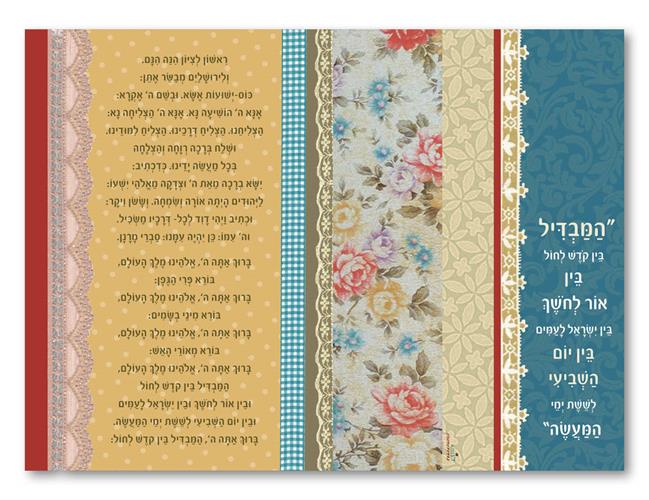 "הַמַּבְדִּיל
בֵּין קֹדֶשׁ לְחוֹל
בֵּין
אוֹר לְחֹשֶׁךְ
בֵּין יִשְׂרָאֵל לָעַמִּים
בֵּין יוֹם
הַשְּׁבִיעִי
לְשֵׁשֶׁת יְמֵי
הַמַּעֲשֶׂה"
רִאשׁוֹן לְצִיּוֹן הִנֵּה הִנָּם,
וְלִירוּשָׁלַיִם מְבַשֵּׂר אֶתֵּן:
כּוֹס-יְשׁוּעוֹת אֶשָּׂא, וּבְשֵׁם ה' אֶקְרָא:
אָנָּא ה' הוֹשִׁיעָה נָּא. אָנָּא ה' הַצְלִיחָה נָּא:
הַצְלִיחֵנוּ, הַצְלִיחַ דְּרָכֵינוּ. הַצְלִיחַ לִמּוּדֵינוּ,
וּשְׁלַח בְּרָכָה רְוָחָה וְהַצְלָחָה
בְּכָל מַעֲשֵׂה יָדֵינוּ. כְּדִכְתִיב:
יִשָּׂא בְרָכָה מֵאֵת ה'. וּצְדָקָה מֵאֱלֹהֵי יִשְׁעוֹ:
לַיְּהוּדִים הָיְתָה אוֹרָה וְשִׂמְחָה. וְשָׂשֹׂן וִיקָר:
וּכְתִיב וַיְהִי דָוִד לְכָל- דְּרָכָיו מַשְׂכִּיל,
וַה' עִמּוֹ: כֵּן יִהְיֶה עִמָּנוּ: סַבְרֵי מָרָנָן.
בָּרוּךְ אַתָּה ה', אֱלֹהֵינוּ מֶלֶךְ הָעוֹלָם,
בּוֹרֵא פְּרִי הַגֶּפֶן:
בָּרוּךְ אַתָּה ה', אֱלֹהֵינוּ מֶלֶךְ הָעוֹלָם,
בּוֹרֵא מִינֵי בְשָׂמִים:
בָּרוּךְ אַתָּה ה', אֱלֹהֵינוּ מֶלֶךְ הָעוֹלָם,
בּוֹרֵא מְאוֹרֵי הָאֵשׁ:
בָּרוּךְ אַתָּה ה', אֱלֹהֵינוּ מֶלֶךְ הָעוֹלָם,
הַמַּבְדִּיל בֵּין קֹדֶשׁ לְחוֹל
וּבֵין אוֹר לְחֹשֶׁךְ וּבֵין יִשְׂרָאֵל לָעַמִּים
וּבֵין יוֹם הַשְּׁבִיעִי לְשֵׁשֶׁת יְמֵי הַמַּעֲשֶׂה.
בָּרוּךְ אַתָּה ה', הַמַּבְדִּיל בֵּין קֹדֶשׁ לְחוֹל: